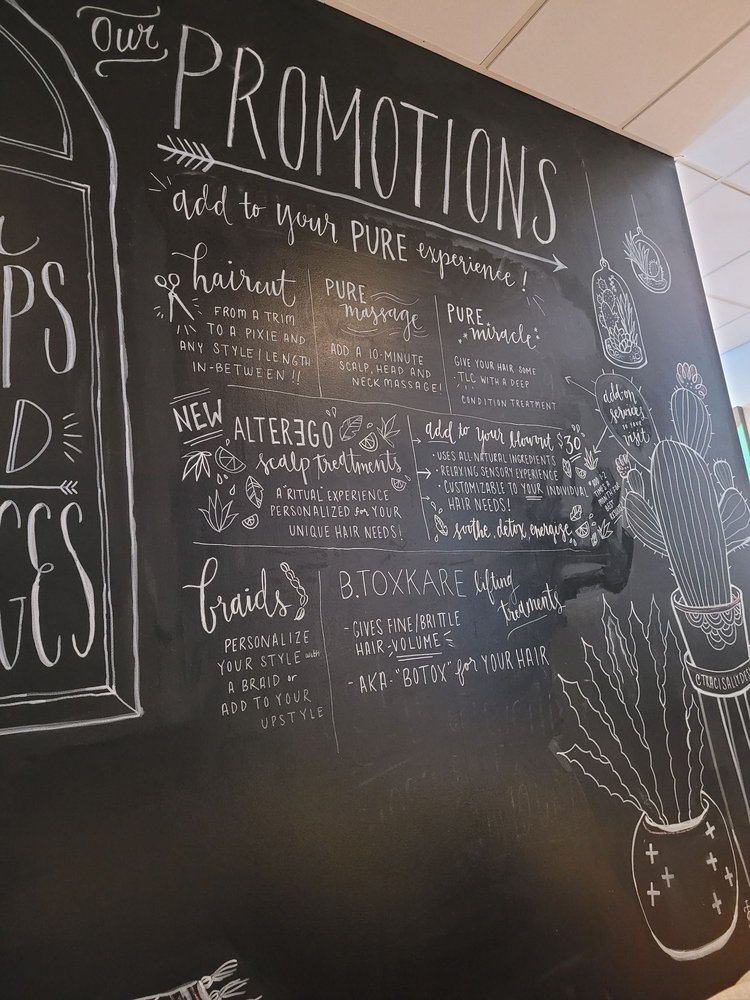 our
PROMOTIONS
add to your PURE experience!
haircut
FROM A TRIM
TO A PIXIE AND
ANY STYLE/LENGTH
IN-BETWEEN!!
PURE
massage
ADD A 10-MINUTE
SCALP, HEAD AND
NECK MASSAGE!
PURE
miracle
GIVE YOUR HAIR SOME
TLC WITH A DEEP
CONDITION TREATMENT
add-on
services
to your
visit
NEW
ALTERƎGO
scalp treatments
A "RITUAL" EXPERIENCE
PERSONALIZED for YOUR
UNIQUE HAIR NEEDS!
add to your blowout $30
• USES ALL-NATURAL INGREDIENTS
• RELAXING SENSORY EXPERIENCE
• CUSTOMIZABLE TO YOUR INDIVIDUAL
HAIR NEEDS!
soothe, detox, energise
braids
PERSONALIZE
YOUR STYLE with
A BRAID or
ADD TO YOUR
UPSTYLE
B.TOXKARE lifting
treatments
- GIVES FINE/BRITTLE
HAIR -VOLUME-
- AKA- "BOTOX" for YOUR HAIR
PS
D
GES